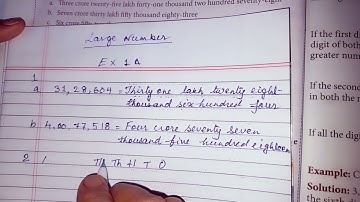 a Three crore twenty-five lakh forty-one thousand two hundred seventy-eight
b Seven crore thirty lakh fifty thousand eighty-three
Large Number
Ex 1A
1
a 31,28,604 = Thirty one lakh twenty eight-
thousand six hundred four
b 4,00,77,518 = Four crore seventy seven
thousand-five hundred eighteen
2 Th H T O
If the first di
digit of both
greater num
If the second
in both the n
If all the digit
Example: C
Solution: 3,
the sixth di